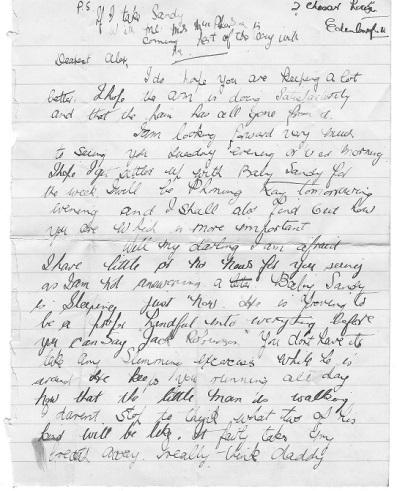 P.S.
If I take Sandy
with me Miss
coming part of the way with
me.
? Chesser
Edinburgh 11
Dearest Alex,
I do hope you are keeping a lot
better. I hope the arm is doing satisfactorily
and that the pain has all gone from it.
I am looking forward very much
to seeing you Tuesday evening or Wed morning.
I hope I get settled up with Baby Sandy for
the week. I will be Phoning Kay tomorrow
evening and I shall also find out how
you are which is more important
Well my darling I am afraid
I have little or no News for you seeing
as I am not answering a Baby Sandy
is Sleeping just Now. He is growing to
be a proper handful into everything before
you can say Jack Robinson. You don't have to
do any Slimming exercises while he is
around. He keeps you running all day
now that the little man is walking.
I darent stop to think what two of his
kind will be like. It fairly takes my
breath away. I really think daddy